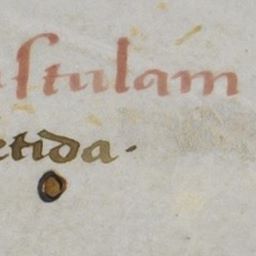 stulam
etida.